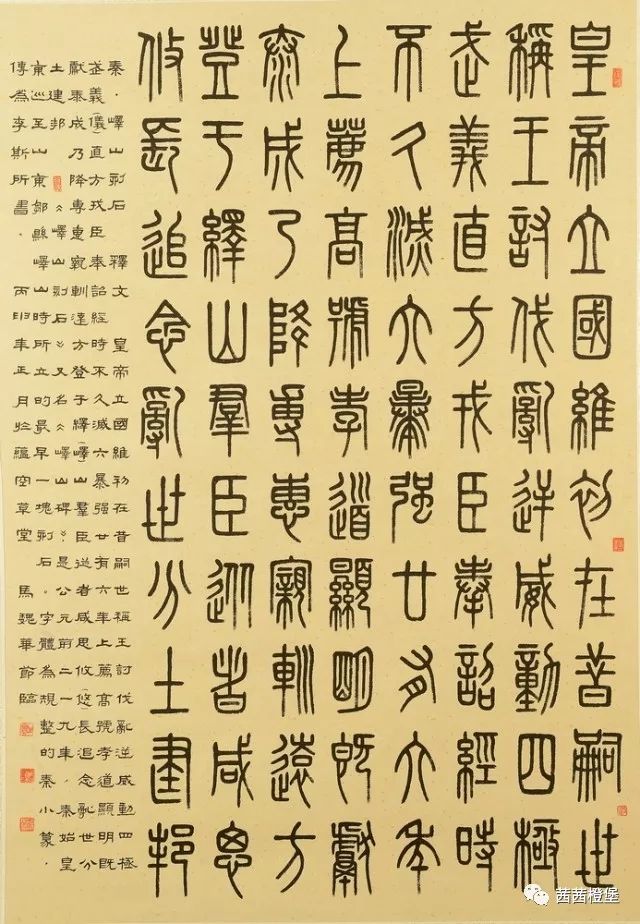 皇帝立國維初在昔嗣世
稱王討伐亂逆威動四極
武義直方戎臣奉詔經時
不久滅六暴強廿有六年
上薦高號孝道顯明既獻
泰成乃降專惠寴䡅遠方
登于繹山羣臣從者咸思
攸長追念亂世分土建邦
秦．嶧山刻石　釋文　皇帝立國維初在昔嗣世稱王討伐亂逆威動四極
武義(儀)直方戎臣奉詔經時不久滅六暴强廿有六年上薦高號孝道顯明既
獻泰成乃降專惠寴䡅遠方登于繹(嶧)山羣臣從者咸思攸(悠)長追念亂世分
土建邦　〈嶧山刻石〉又名〈嶧山碑〉是公元前二一九年，秦始皇
東巡至山東鄒縣嶧山時所立的最早一塊刻石。字體為規整的秦小篆．
傳為李斯所書．丙申年正月於蘊空草堂　馬魏華節臨
茜茜橙堡